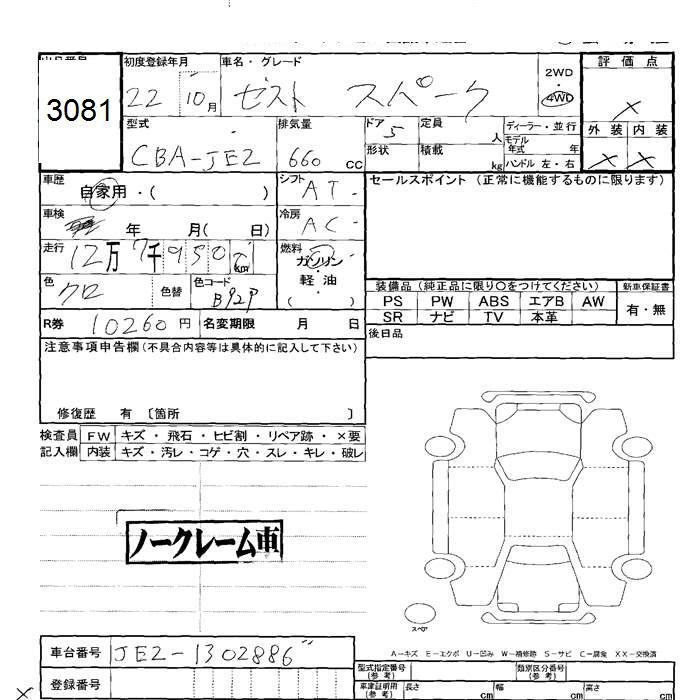 3081
初度登録年月 車名・グレード
22 10月 ゼスト スパーク
2WD
4WD
評価点
×
外装 内装
× ×
型式 排気量 ドア 定員 ディーラー・並行
CBA-JE2 660 cc 5 人 モデル年式 年
形状 積載 kg ハンドル 左・右
車歴 シフト セールスポイント(正常に機能するものに限ります)
自家用・( ) AT
車検 冷房
年 月( 日) AC
走行 燃料
12万7千950 km ガソリン・
軽・油
( )
色 色替 色コード
クロ B92P
装備品(純正品に限り○をつけてください) 新車保証書
PS PW ABS エアB AW 有・無
SR ナビ TV 本革
R券 10260円 名変期限 月 日
後日品
注意事項申告欄(不具合内容等は具体的に記入して下さい)
修復歴 有 〔箇所 〕
検査員 FW キズ・飛石・ヒビ割・リペア跡・×要
記入欄 内装 キズ・汚レ・コゲ・穴・スレ・キレ・破レ
ノークレーム車
スペア
A−キズ E−エクボ U−凹み W−補修跡 S−サビ C−腐食 XX−交換済
車台番号 JE2-1302886
登録番号
型式指定番号(参考) 類別区分番号(参考)
車庫証明用(参考) 長さ cm 幅 cm 高さ cm
×